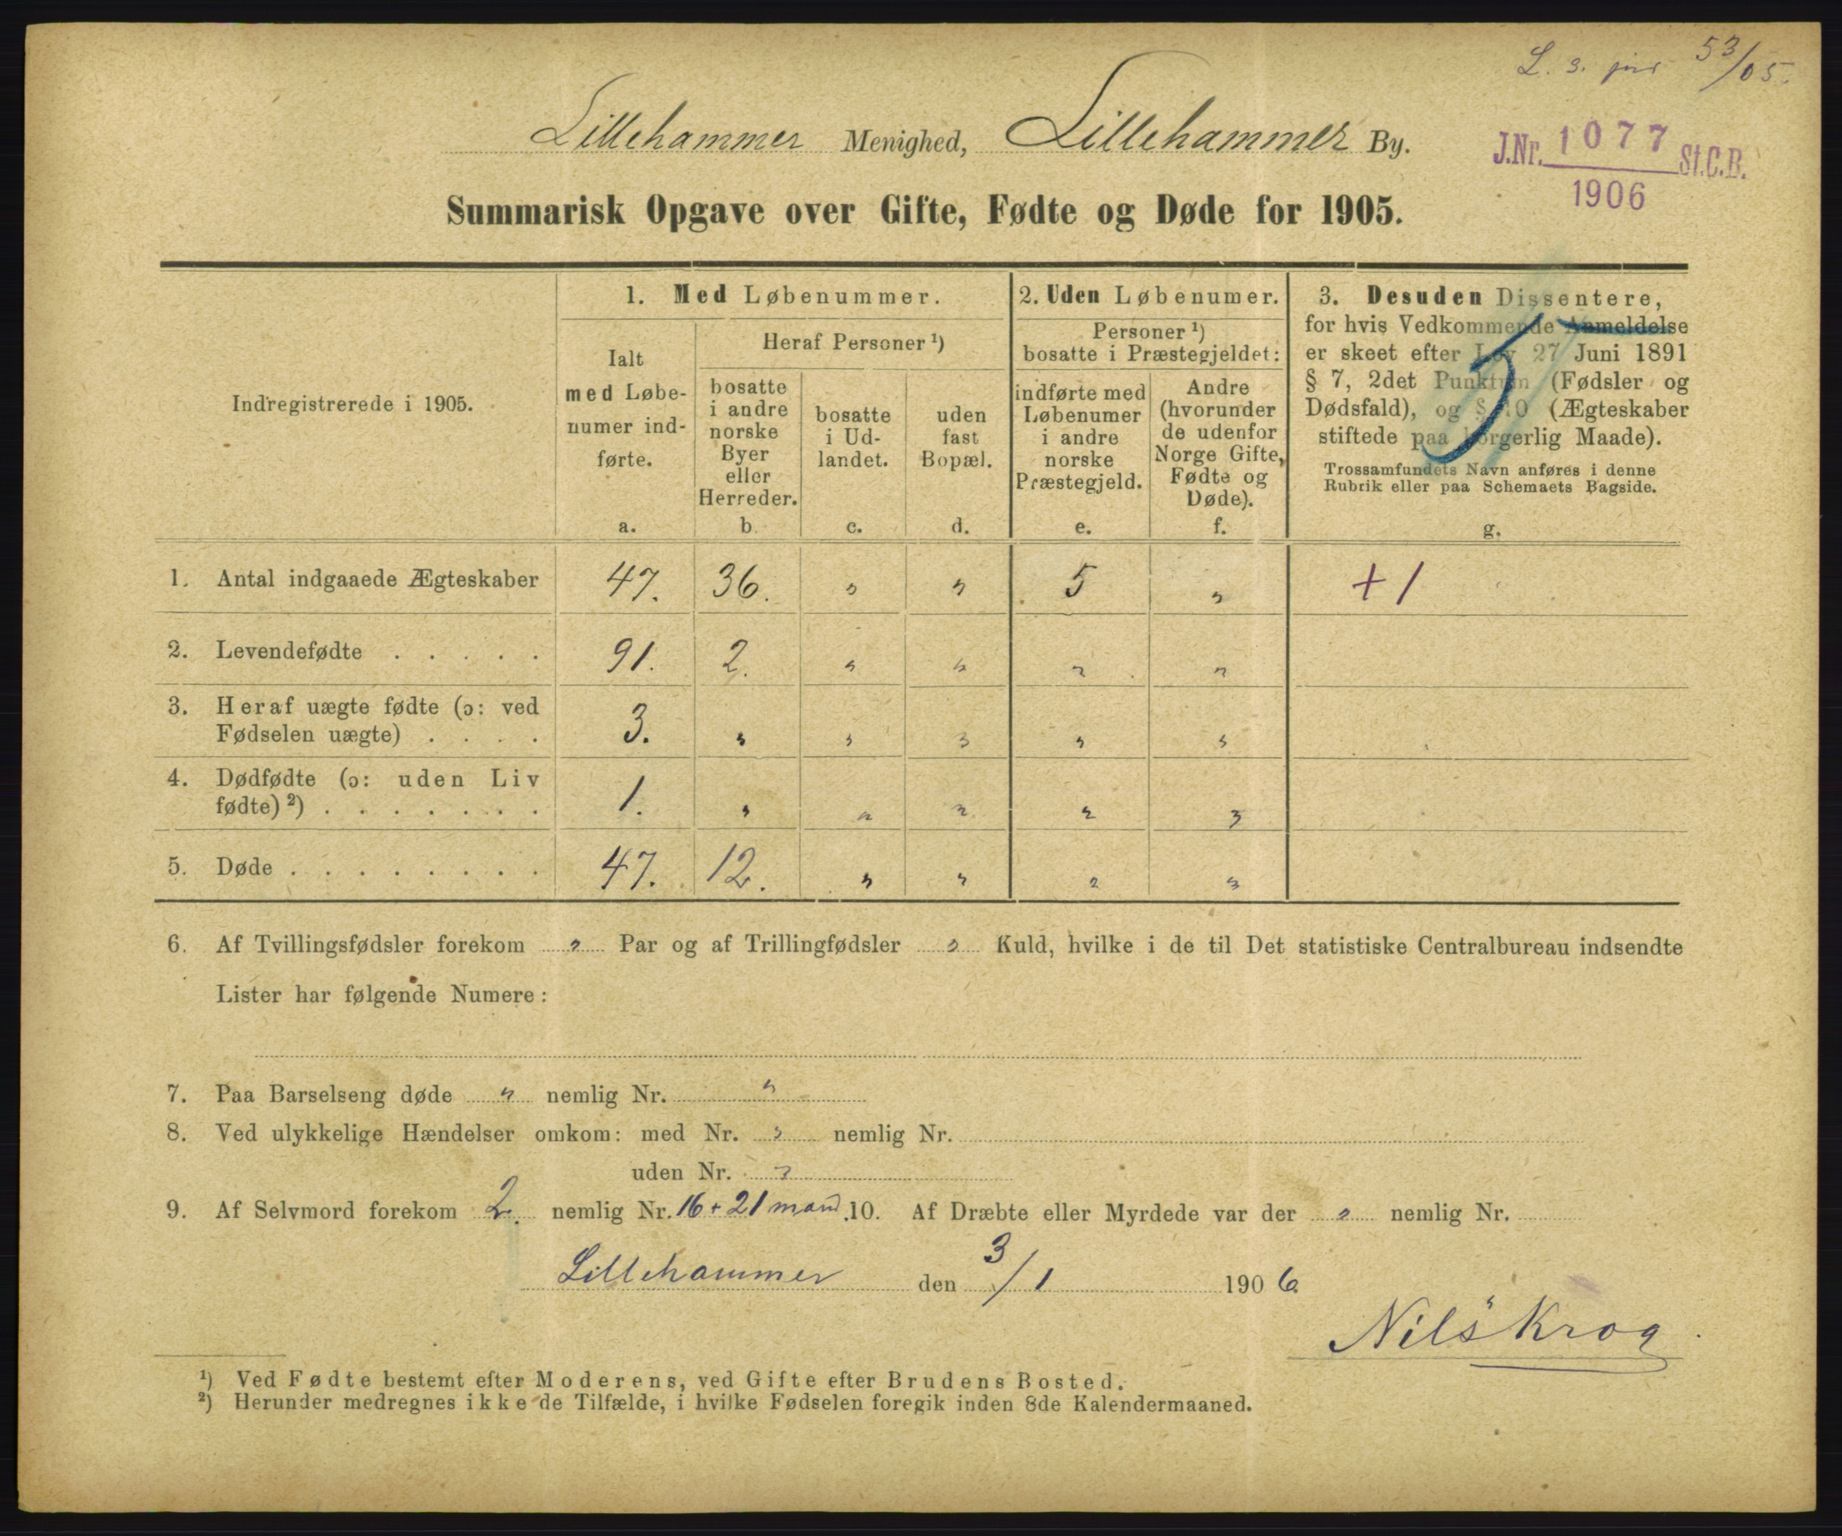 53/05.
Lillehammer Menighed, Lillehammer By.
J.Nr. 1077 St.C.B.
1906
Summarisk Opgave over Gifte, Fødte og Døde for 1905.
Indregistrerede i 1905.
1. Med Løbenummer.
Ialt
med Løbe-
numer ind-
førte.
a.
Heraf Personer ¹)
bosatte
i andre
norske
Byer
eller
Herreder.
b
bosatte
i Ud-
landet.
c.
uden
fast
Bopæl.
d.
2. Uden Løbenumer.
Personer ¹)
bosatte i Præstegjeldet:
indførte med
Løbenumer
i andre
norske
Præstegjeld.
e.
Andre
(hvorunder
de udenfor
Norge Gifte,
Fødte og
Døde).
f.
3. Desuden Dissentere,
for hvis Vedkommende Anmeldelse
er skeet efter Lov 27 Juni 1891
§ 7, 2det Punktum (Fødsler og
Dødsfald), og § 10 (Ægteskaber
stiftede paa borgerlig Maade).
Trossamfundets Navn anføres i denne
Rubrik eller paa Schemaets Bagside.
g.
1. Antal indgaaede Ægteskaber 47. 36. " " 5 " + 1
2. Levendefødte . . . . . 91. 2. " " " "
3. Heraf uægte fødte (ɔ: ved
Fødselen uægte) . . . . 3. " " " " "
4. Dødfødte (ɔ: uden Liv
fødte) ²) . . . . . . . 1. " " " " "
5. Døde . . . . . . . . 47. 12. " " " "
6. Af Tvillingsfødsler forekom " Par og af Trillingfødsler " Kuld, hvilke i de til Det statistiske Centralbureau indsendte
Lister har følgende Numere:
7. Paa Barselseng døde " nemlig Nr. "
8. Ved ulykkelige Hændelser omkom: med Nr. " nemlig Nr.
uden Nr. "
9. Af Selvmord forekom 2. nemlig Nr. 16 + 21 mand. 10. Af Dræbte eller Myrdede var der " nemlig Nr.
Lillehammer den 3/1 1906.
Nils Krog
¹) Ved Fødte bestemt efter Moderens, ved Gifte efter Brudens Bosted.
²) Herunder medregnes ikke de Tilfælde, i hvilke Fødselen foregik inden 8de Kalendermaaned.